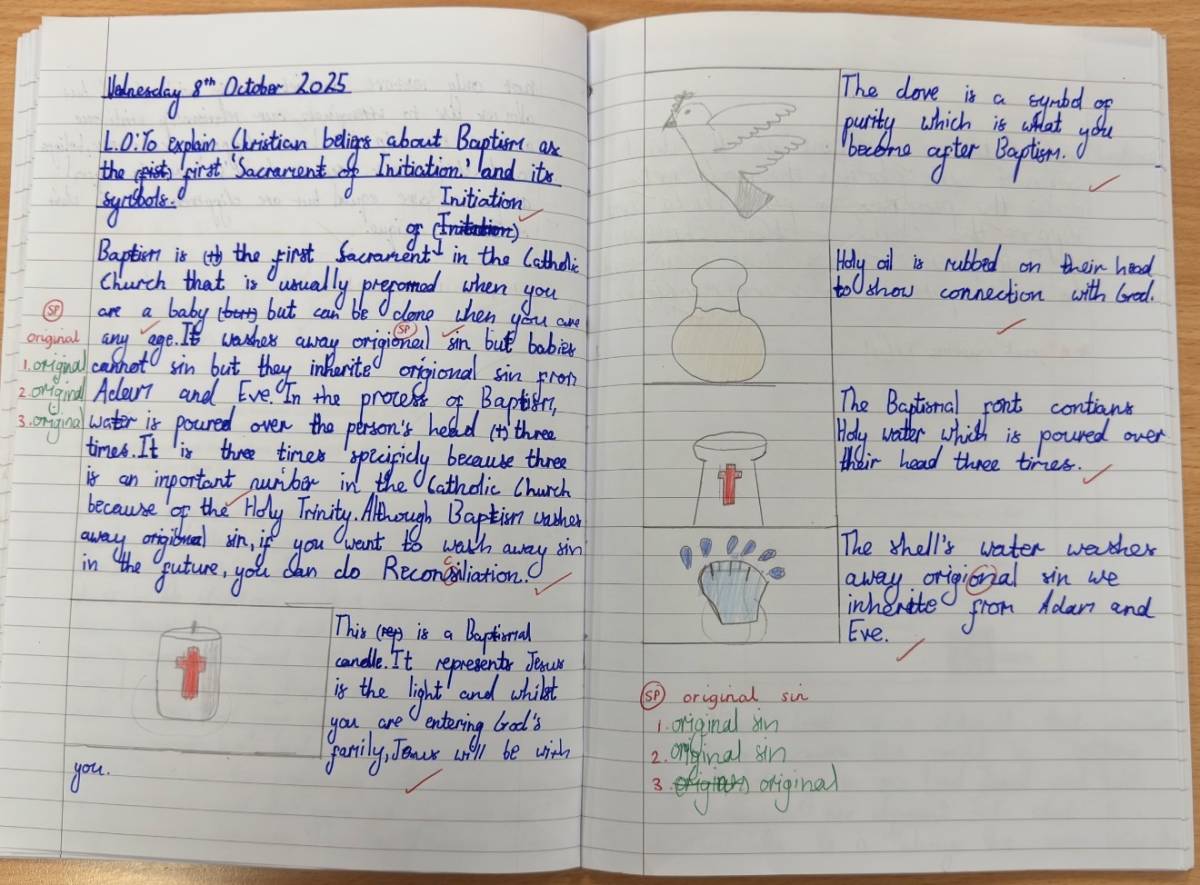 Wednesday 8th October 2025
L.O: To explain Christian beliefs about Baptism as
the (fist) first 'Sacrament of Initiation.' and its
symbols.
Initiation
of (Initation)
Baptism is (t) the first Sacrament in the Catholic
Church that is usually prefomed when you
are a baby (but) but can be done when you are
any age. It washes away origional sin but babies
cannot sin but they inherite origional sin from
Adam and Eve. In the process of Baptism,
water is poured over the person's head (t) three
times. It is three times specificly because three
is an inportant number in the Catholic Church
because of the Holy Trinity. Although Baptism washes
away origional sin, if you want to wash away sin
in the future, you can do Reconsiliation.
c
SP
SP
original
1. original
2. original
3. original
This (rep) is a Baptismal
candle. It represents Jesus
is the light and whilst
you are entering God's
family, Jesus will be with
you.
The dove is a symbol of
purity which is what you
become after Baptism.
Holy oil is rubbed on their head
to show connection with God.
The Baptismal font contians
Holy water which is poured over
their head three times.
The shell's water washes
away origional sin we
inherite from Adam and
Eve.
SP original sin
1. original sin
2. original sin
3. original